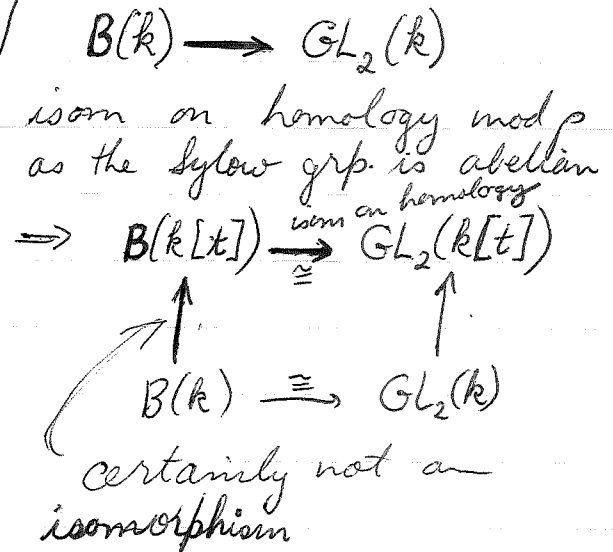 B(k) → GL₂(k)
isom on homology mod p
as the Sylow grp. is abelian
isom on homology
⇒ B(k[t]) → GL₂(k[t])
≅
↑ ↑
B(k) ≅→ GL₂(k)
certainly not an
isomorphism